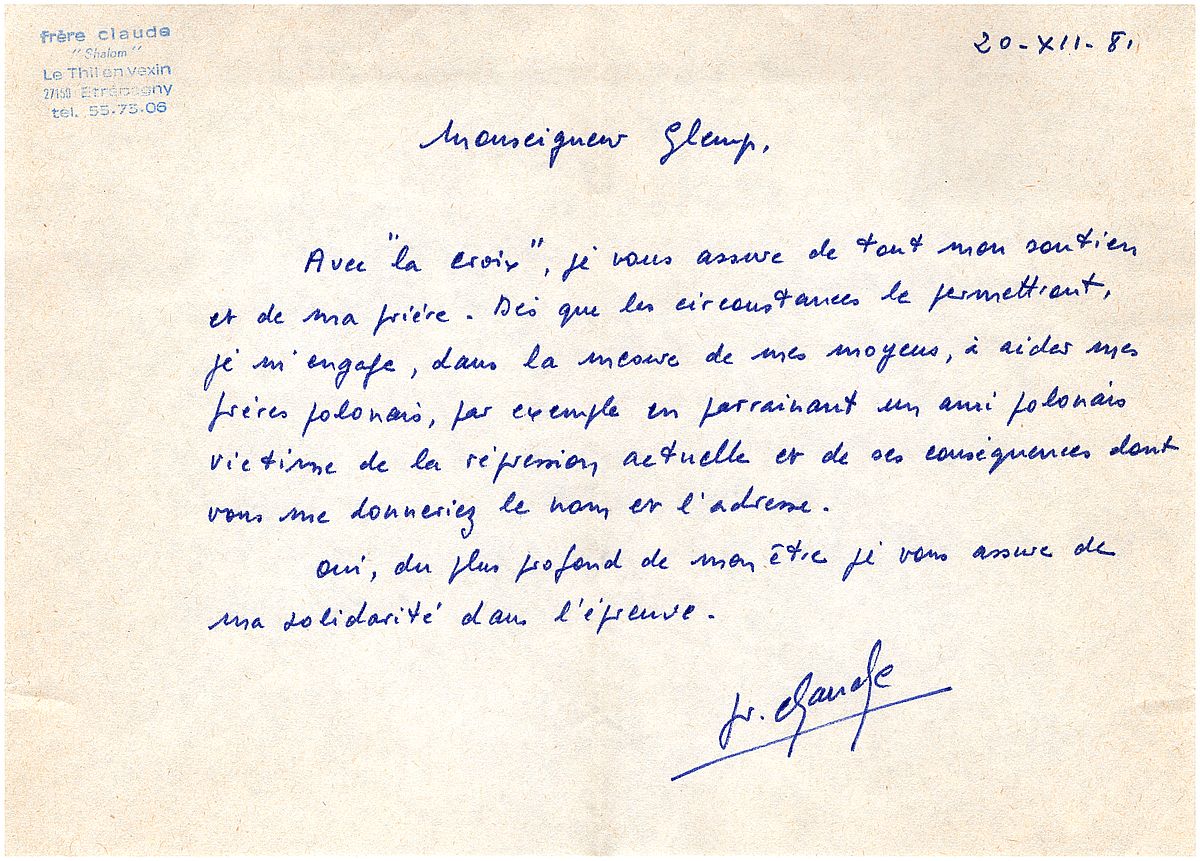 frère claude
"Shalom"
Le Thil en vexin
27150 Etrépagny
tél. 55.73.06
20-XII-81
Monseigneur Glemp,
Avec "la croix", je vous assure de tout mon soutien
et de ma prière. Dès que les circonstances le permettront,
je m'engage, dans la mesure de mes moyens, à aider mes
frères polonais, par exemple en parrainant un ami polonais
victime de la répression actuelle et de ses conséquences dont
vous me donneriez le nom et l'adresse.
oui, du plus profond de mon être je vous assure de
ma solidarité dans l'épreuve.
fr. Claude